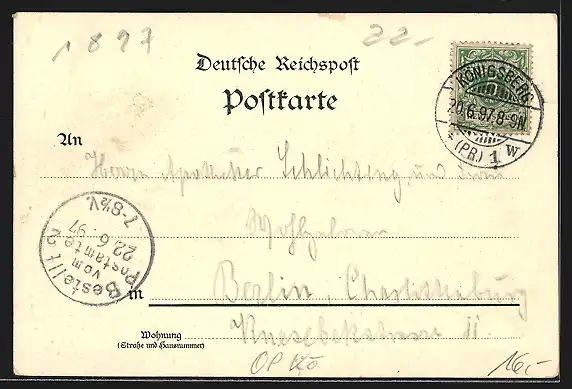 1897
22.-
Deutsche Reichspost
Postkarte
KÖNIGSBERG
20.6.97.8-9N
(PR.) 1 W
An
Herrn Apotheker Schlichting und Frau
Wohlgeboren
Bestellt
vom
Postamte 2
22.6.97
7-8½V.
in Berlin, Charlottenburg
Wohnung
(Straße und Hausnummer)
Knesebeckstrasse 11
16,-